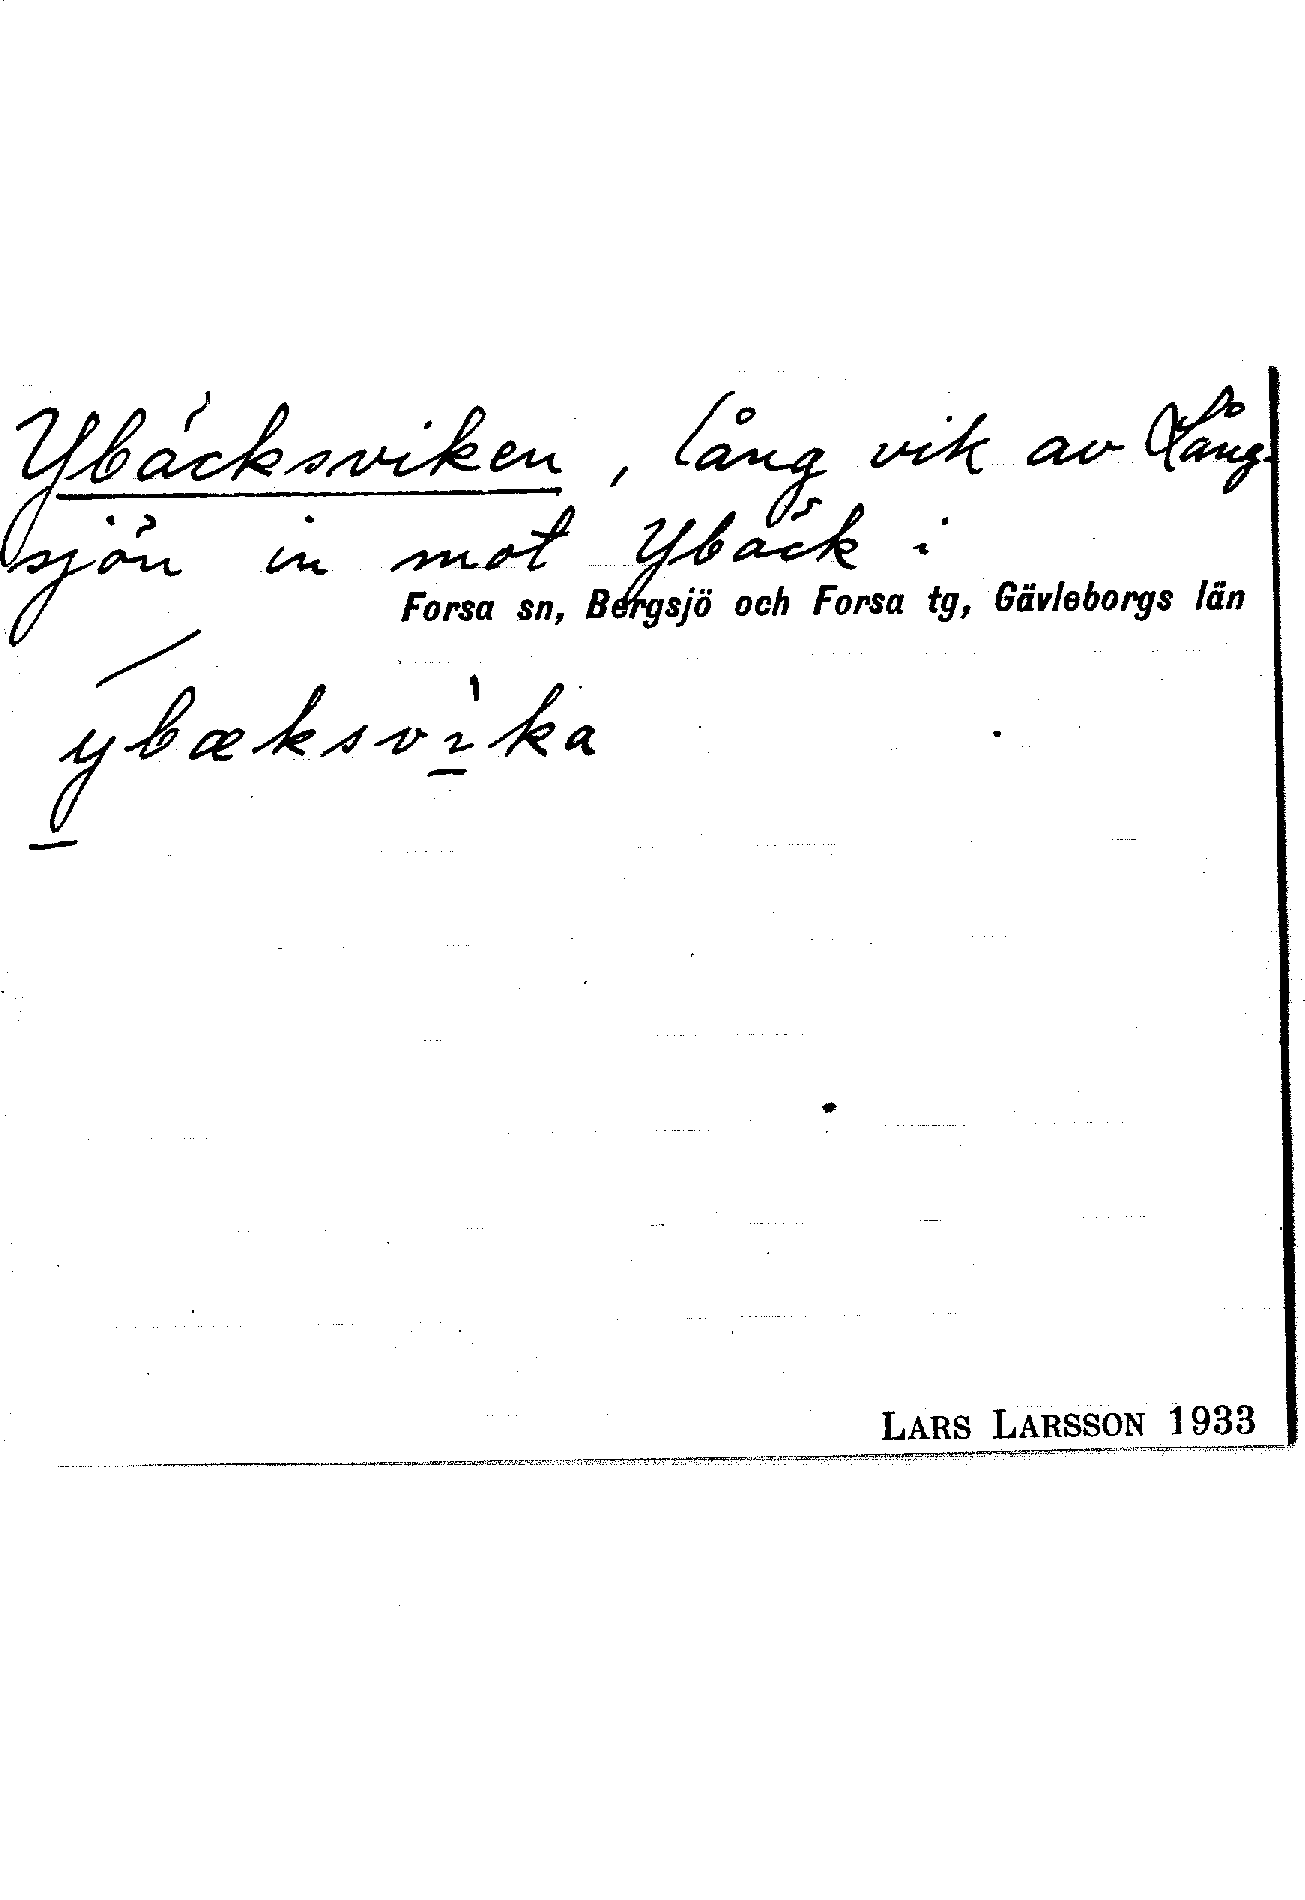 Ybäcksviken, lång vik av Lång-
sjön in mot Ybäck i
Forsa sn, Bergsjö och Forsa tg, Gävleborgs län
ybæksvika
LARS LARSSON 1933